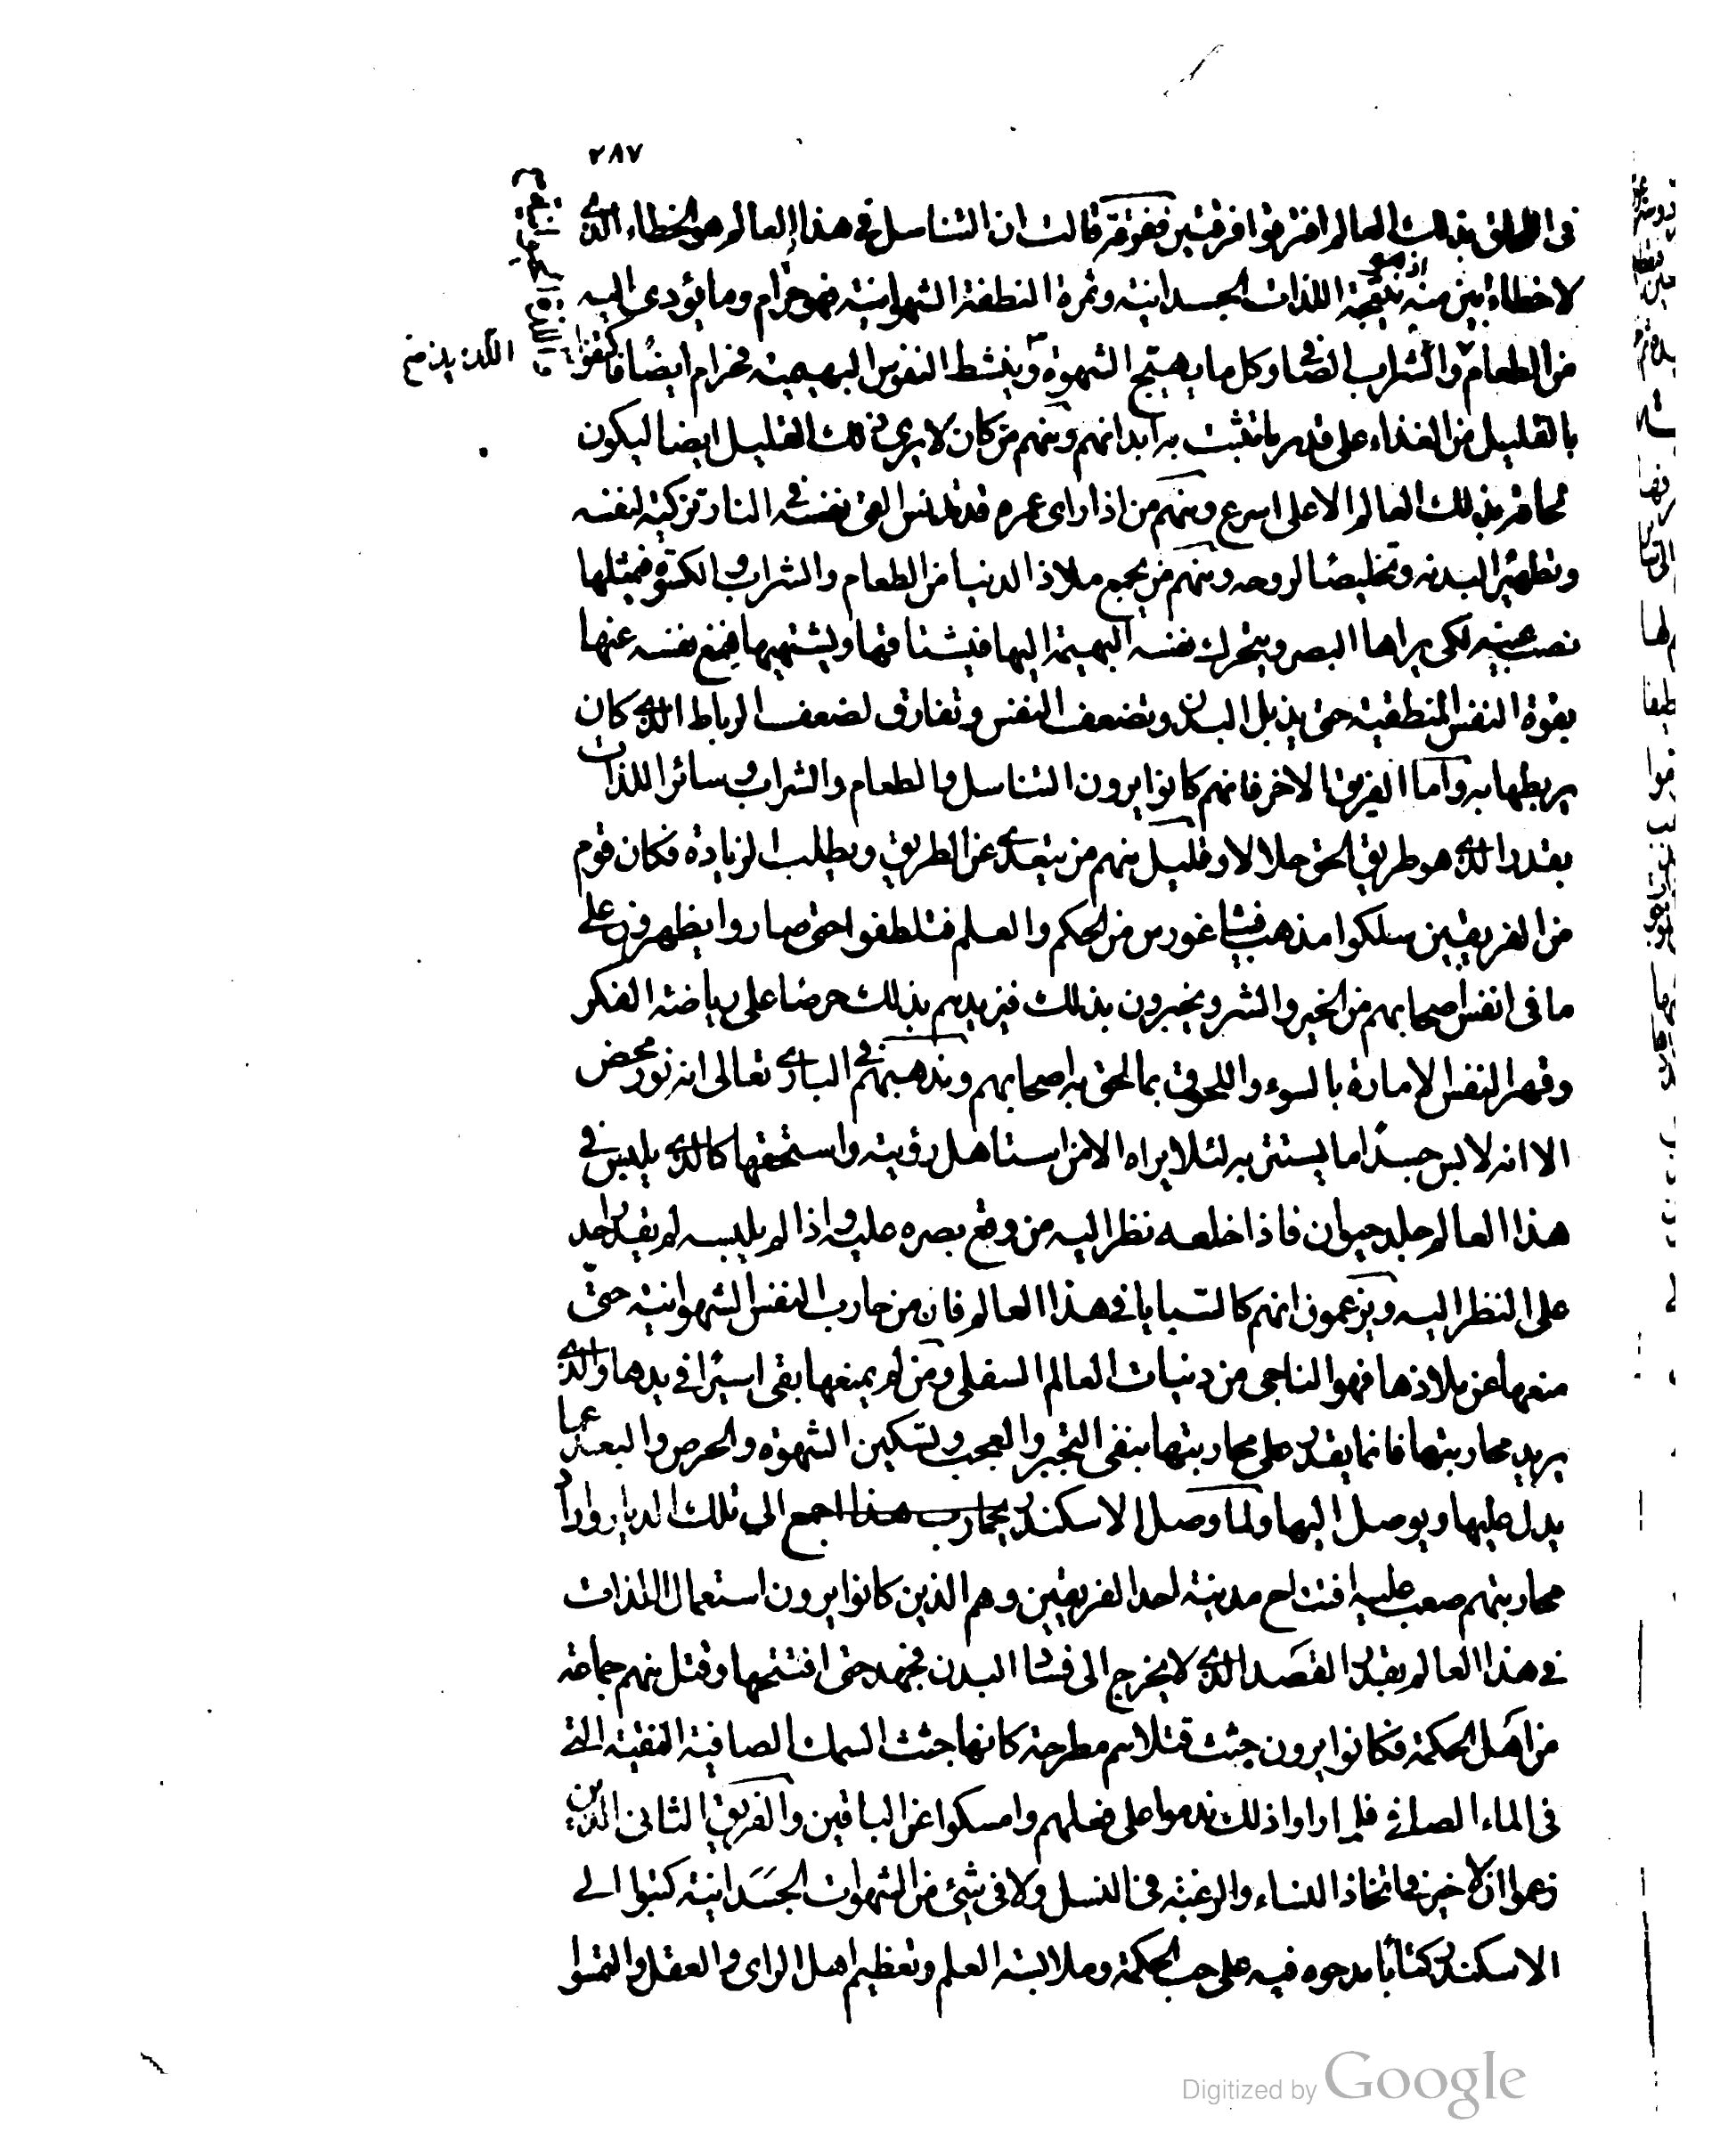 ٢٨٧
فى اللحاق بذلك العالم افترقوا فرقتين ففرقة قالت ان التناسل فى هذا العالم هو الخطاء الذى
لا خطاء ابين منه اذ هو نتيجة اللذات الجسدانية وثمرة النطفة الشهوانية فهو حرام وما يؤدى اليه
من الطعام والشراب الصافى وكل ما يهيج الشهوة وينشط النفوس البهيمية فحرام ايضا فاكتفوا
اللذيذ نخ
بالقليل من الغذاء على قدر ما تثبت به ابدانهم ومنهم من كان لا يرى ذلك القليل ايضا ليكون
لحاقه بذلك العالم الاعلى اسرع ومنهم من اذا راى عمره قد تنفس القى نفسه فى النار تزكية لنفسه
وتطهيرا لبدنه وتخليصا لروحه ومنهم من يجمع ملاذ الدنيا من الطعام والشراب والكسوة فيمثلها
نصب عينيه لكى يراها البصر ويتحرك نفسه البهيمة اليها فيشتاقها ويشتهيها فيمنع نفسه عنها
بقوة النفس المنطقية حتى يذبل البدن وتضعف النفس وتفارق لضعف الرباط الذى كان
يربطها به واما الفريق الاخر فانهم كانوا يرون التناسل والطعام والشراب وسائر اللذات
بقدر الذى هو طريق الحق حلالا وقليل منهم من يتعدى عن الطريق ويطلب الزيادة فكان قوم
من الفريقين سلكوا مذهب فيثاغورس من الحكم والعلم فتلطفوا حتى صاروا يظهرون على
ما فى انفس اصحابهم من الخير والشر ويخبرون بذلك فيزيدهم بذلك حرصا على رياضة الفكر
وقهر النفس الامارة بالسوء واللحوق بما لحق به اصحابهم ومذهبهم فى البارى تعالى انه نور محض
الا انه لابس جسدا ما يستتر به لئلا يراه الا من استاهل رؤيته واستحقها كالذى يلبس فى
هذا العالم جلد حيوان فاذا خلعه نظر اليه من وقع بصره عليه واذا لم يلبسه لم يقدر احد
على النظر اليه ويزعمون انهم كالسبايا فى هذا العالم فان من حارب النفس الشهوانية حتى
منعها عن ملاذها فهو الناجى من دنيات العالم السفلى ومن لم يمنعها بقى اسيرا فى يدها والذى
يريد محاربتها فانما يقدر على محاربتها بنفى التجبر والعجب وتسكين الشهوة والحرص والبعد عما
يدل عليها ويوصل اليها ولما وصل الاسكندر يحارب هذا اجمع الى تلك الديار واراد
محاربتهم صعب عليه افتتاح مدينة احد الفريقين وهم الذين كانوا يرون استعمال اللذات
فى هذا العالم بقدر القصد الذى لا يخرج الى فساد البدن فجهد حتى افتتحها وقتل منهم جماعة
من اهل الحكمة فكانوا يرون جثث قتلاهم مطرحة كانها جثث السمك الصافية النقية التى
فى الماء الصافى فلما راوا ذلك ندموا على فعلهم وامسكوا عن الباقين والفريق الثانى الذين
زعموا ان لا خير فى اتخاذ النساء والرغبة فى النسل ولا فى شئ من الشهوات الجسدانية كتبوا الى
الاسكندر كتابا مدحوه فيه على حب الحكمة وملابسة العلم وتعظيم اهل الراى والعقل والتمسوا
Digitized by Google